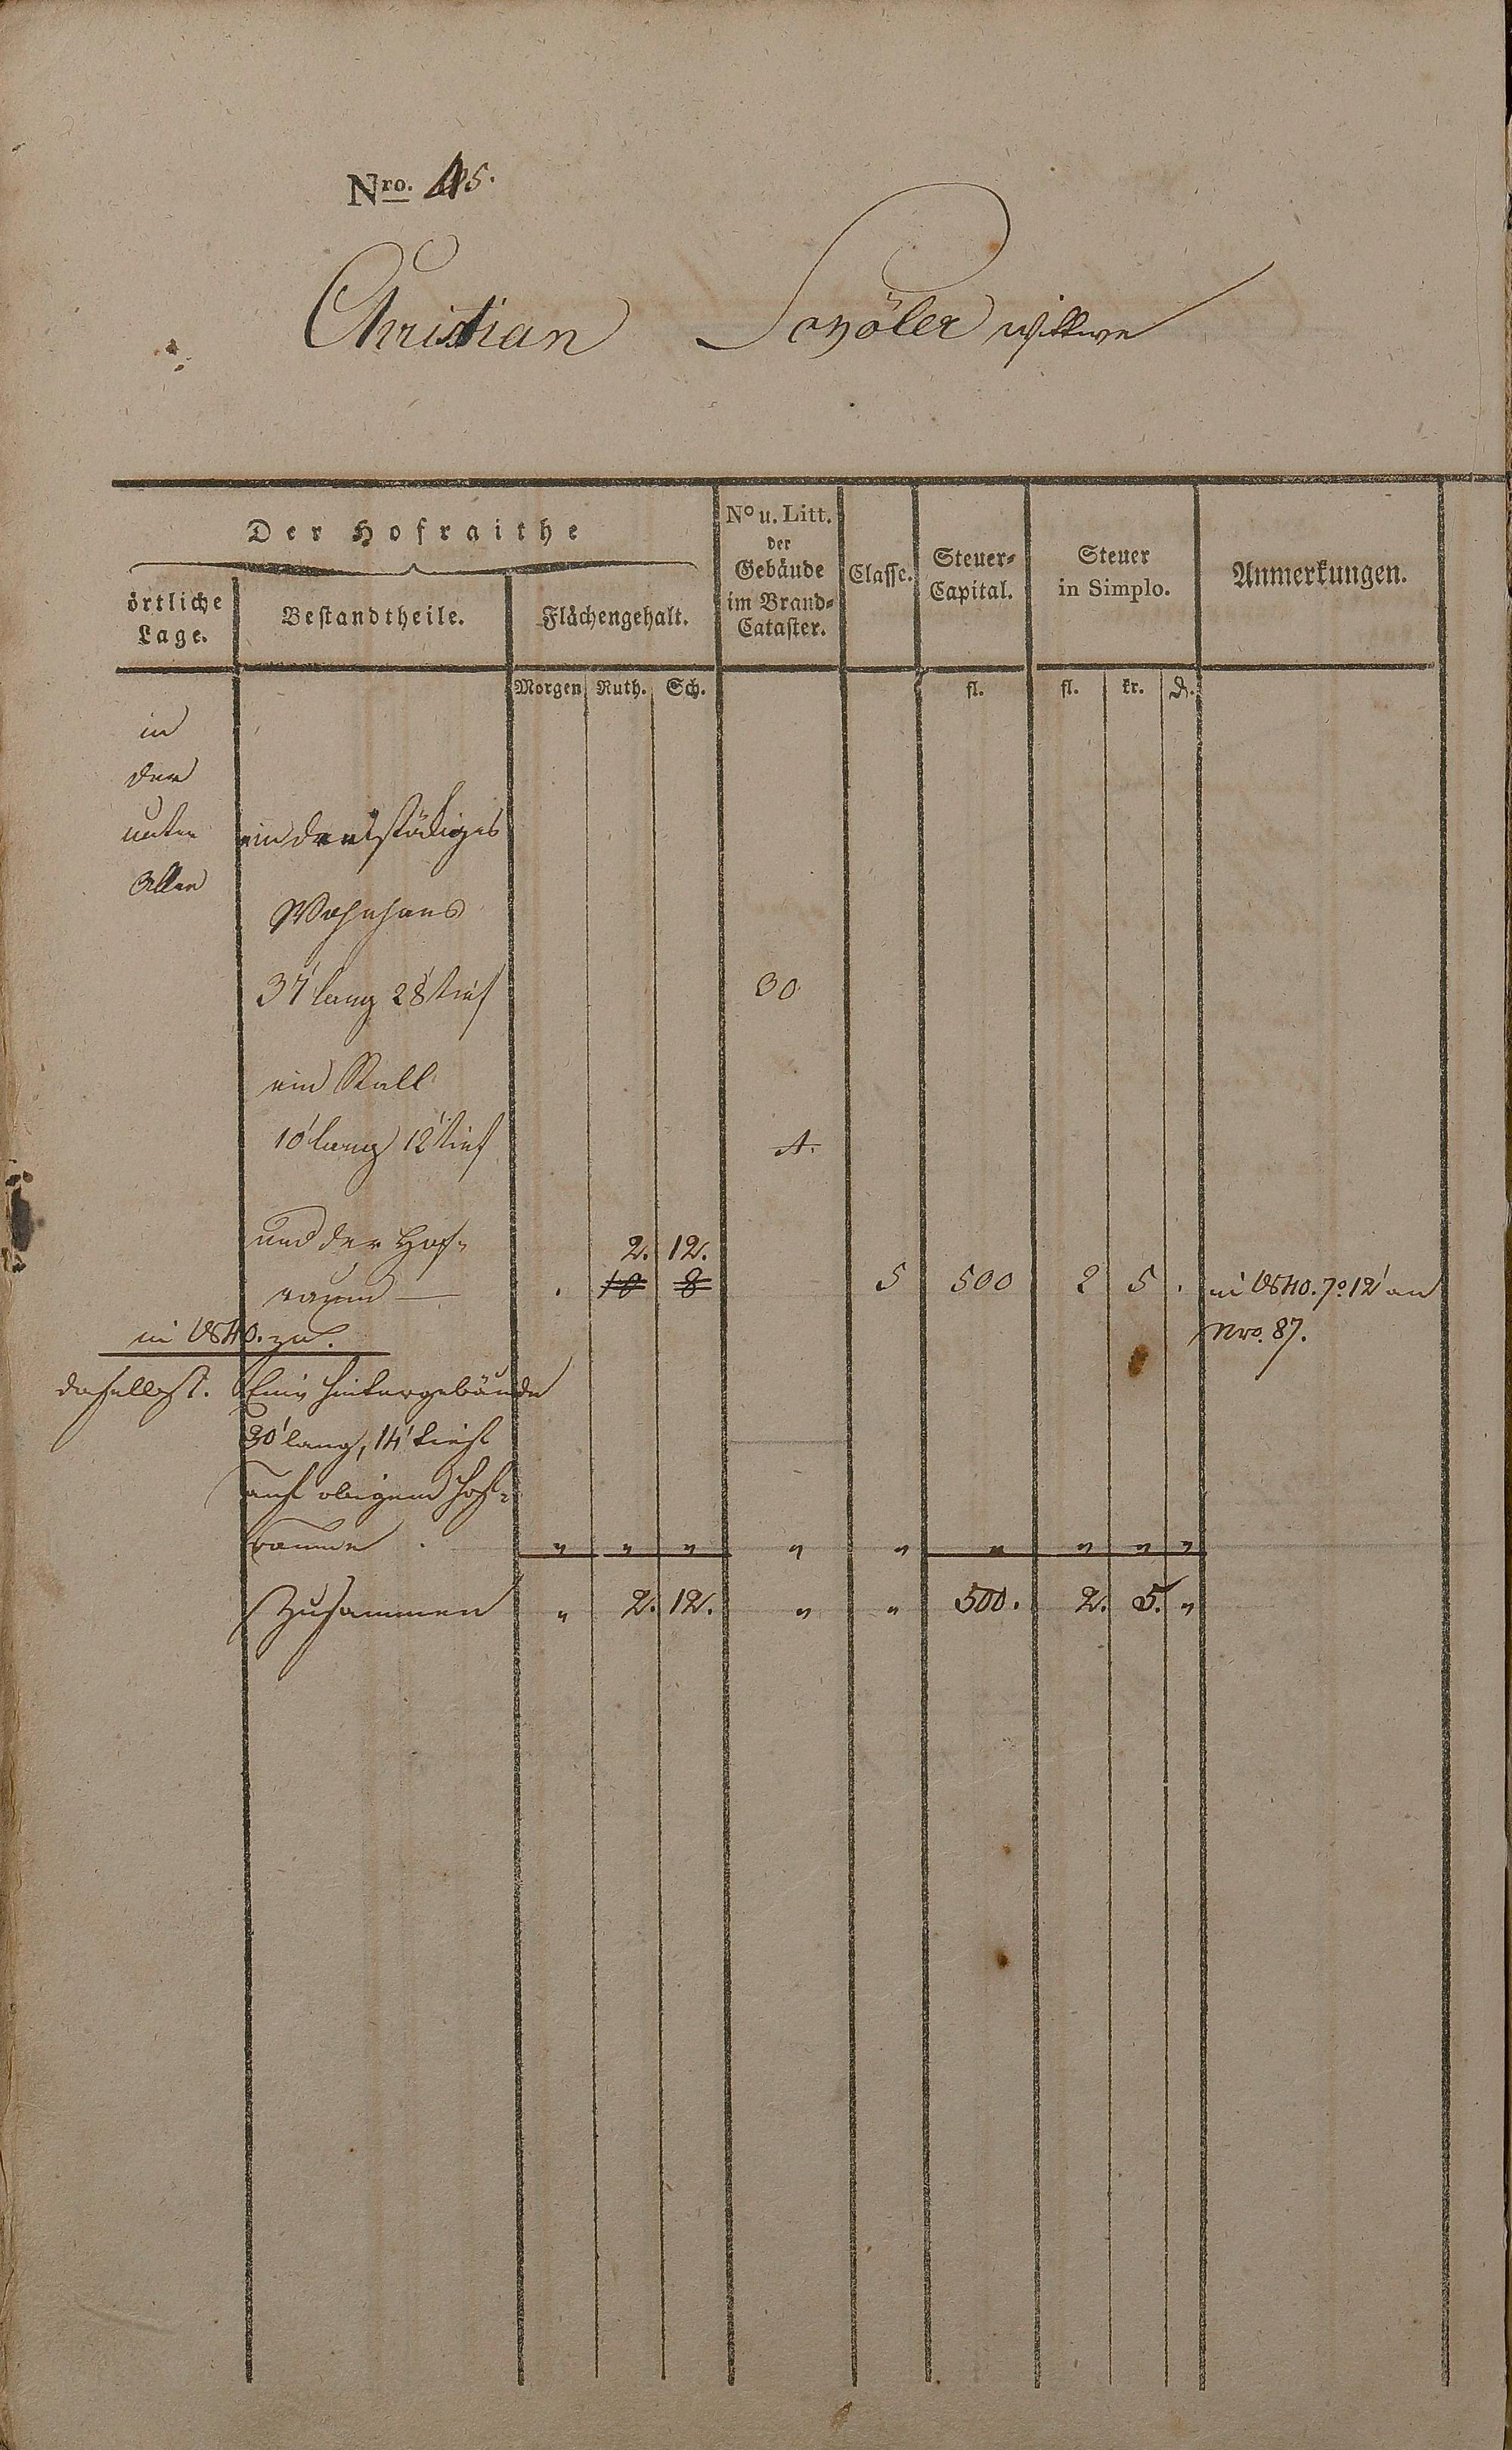 Nro. 45.
Christian Schöler wittwe
Der Hofraithe
örtliche Lage.
Bestandtheile.
Flächengehalt.
No u. Litt. der Gebäude im Brand-Cataster.
Classe.
Steuer-Capital.
Steuer in Simplo.
Anmerkungen.
Morgen Ruth. Sch. fl. fl. kr. ₰.
in
der
unter ein dreistödiges
Allee
Wohnhaus
37' lang 28' tief 30
ein Stall
10' lang 12' tief A.
und der Hof- 2. 12.
raum — . 10 8 5 500 2 5 . in 1840. 7° 12' an
in 1840. zu. Nro. 87.
daselbst. Ein hintergebäude
30' lang, 14' tief
auf obigem Hof-
raume . " " " " " " " " "
Zusammen " 2. 12. " " 500. 2. 5. "